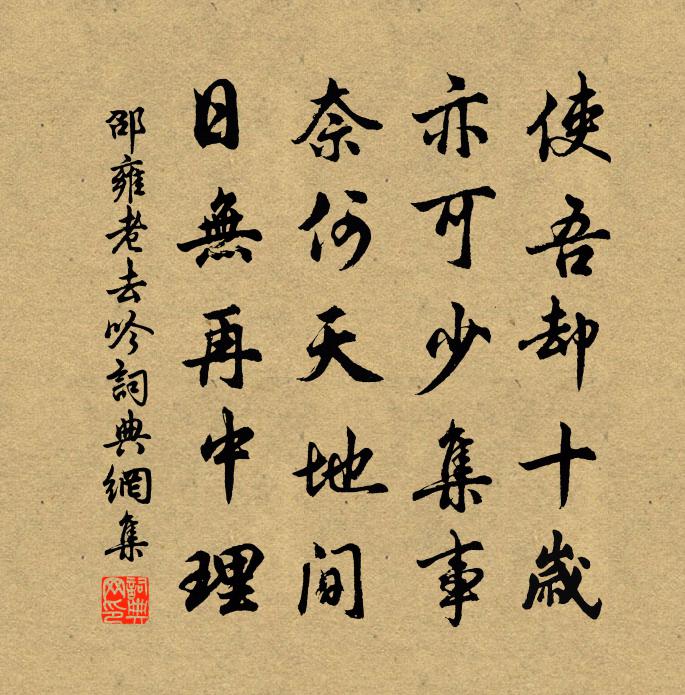 使吾却十歲
亦可少集事
奈何天地間
日無再中理
邵雍老去吟詞典網集
詞典
网印